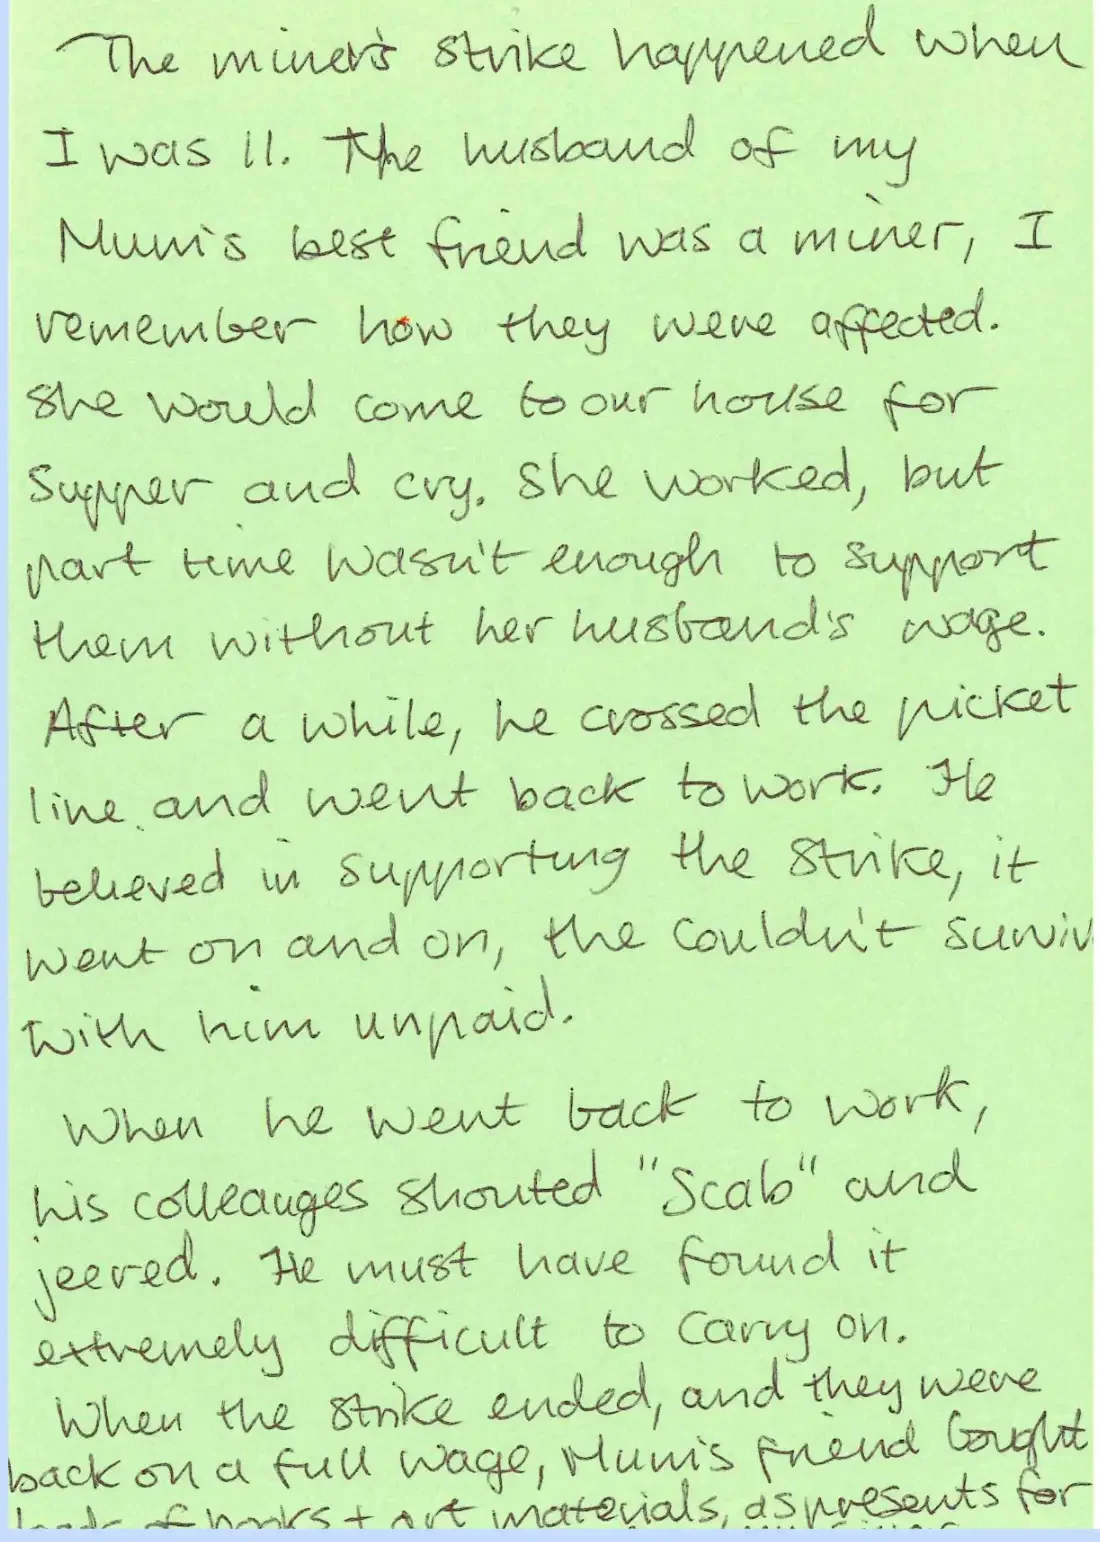 The miner's strike happened when
I was 11. The husband of my
Mum's best friend was a miner, I
remember how they were affected.
She would come to our house for
supper and cry. She worked, but
part time wasn't enough to support
them without her husband's wage.
After a while, he crossed the picket
line and went back to work. He
believed in supporting the strike, it
went on and on, the couldn't surviv
with him unpaid.
When he went back to work,
his colleauges shouted "Scab" and
jeered. He must have found it
extremely difficult to carry on.
When the strike ended, and they were
back on a full wage, Mum's friend bought
loads of books + art materials, as presents for